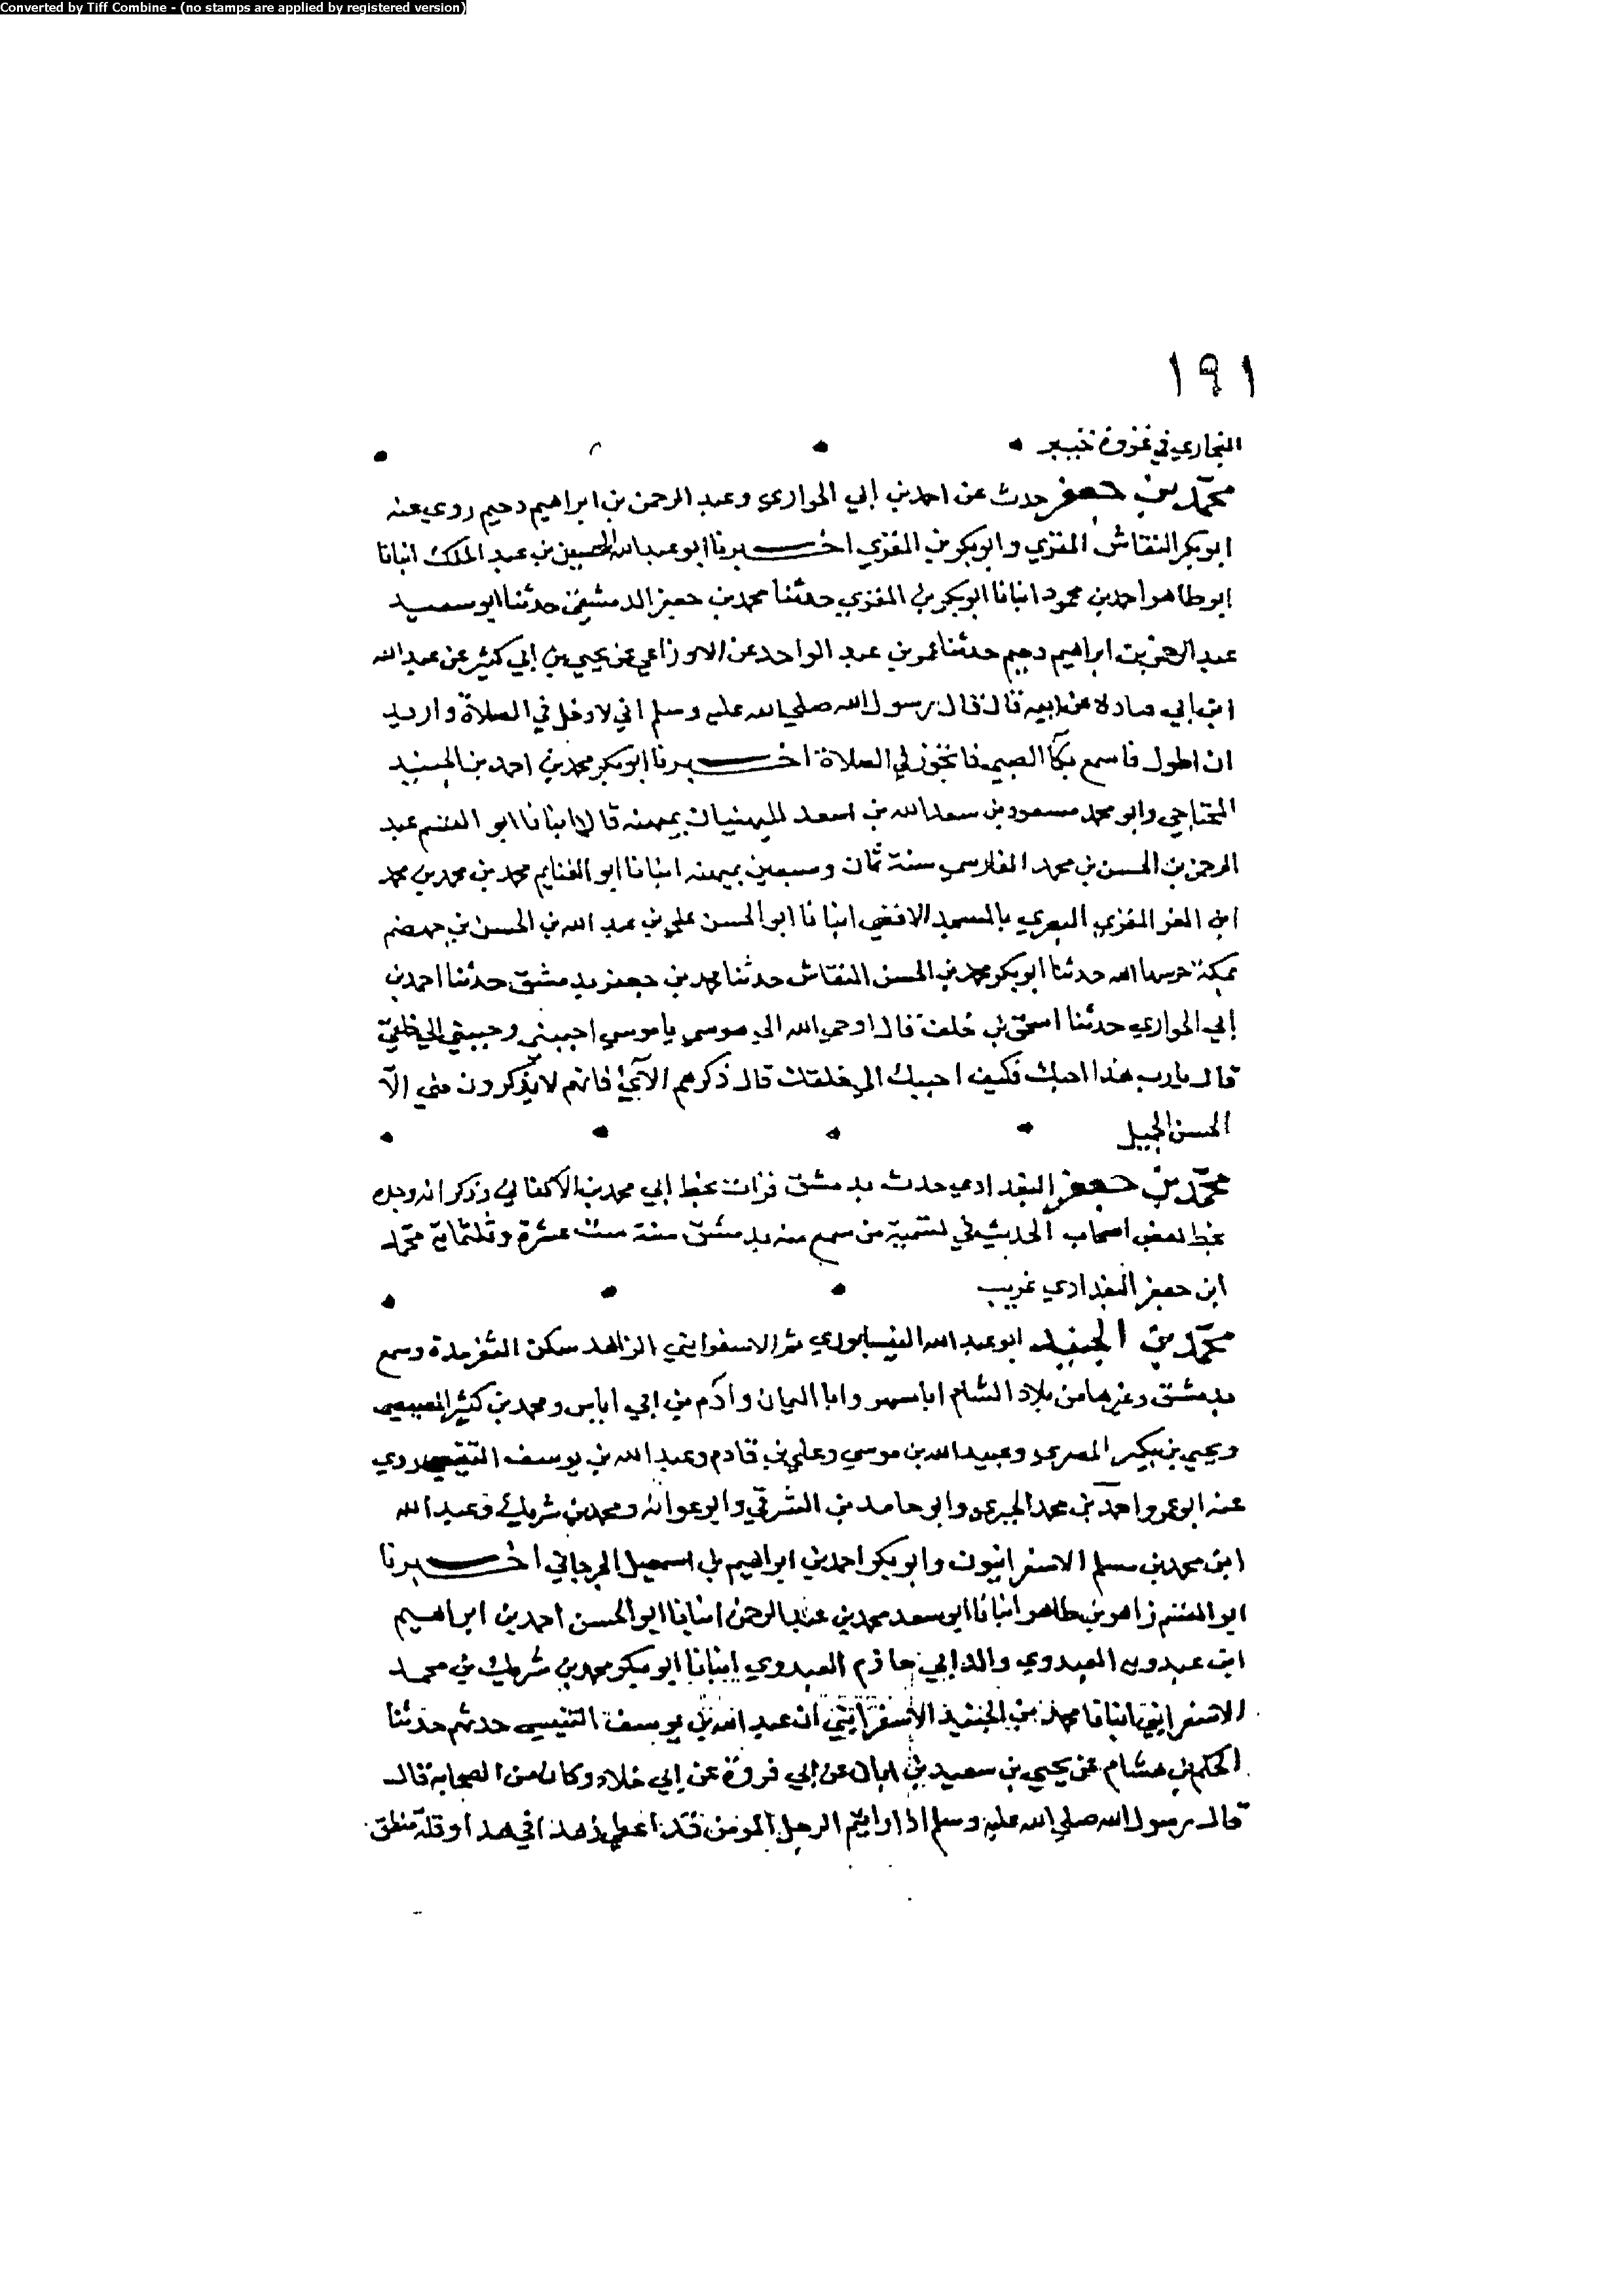 Converted by Tiff Combine - (no stamps are applied by registered version)
١٩١
البخاري في غزوة خيبر
محمد بن جعفر حدث عن احمد بن ابي الحواري وعبد الرحمن بن ابراهيم دحيم روي عنه
ابو بكر النقاش المقري وابو بكر بن المقري اخـــبرنا ابو عبد الله الحسين بن عبد الملك انبانا
ابو طاهر احمد بن محمود انبانا ابو بكر بن المقري حدثنا محمد بن جعفر الدمشقي حدثنا ابو سعيد
عبد الرحمن بن ابراهيم دحيم حدثنا عمر بن عبد الواحد عن الاوزاعي عن يحيي بن ابي كثير عن عبد الله
ابن ابي قتادة عن ابيه قال قال رسول الله صلي الله عليه وسلم اني لادخل في الصلاة واريد
ان اطول فاسمع بكآ الصبي فاتجوز في الصلاة اخـــبرنا ابو بكر محمد بن احمد بن الجنيد
وابو محمد مسعود بن سعد الله بن اسعد الميهنيان بميهنه قالا انبانا ابو القسم عبد
الرحمن بن الحسن بن محمد الفارسي سنة ثمان وسبعين بميهنه انبانا ابو الغنايم محمد بن محمد بن محمد
ابن المقري البصري بالمسجد الاقصي انبانا ابو الحسن علي بن عبد الله بن الحسن بن جهضم
بمكة حرسها الله حدثنا ابو بكر محمد بن الحسن النقاش حدثنا محمد بن جعفر بدمشق حدثنا احمد بن
ابي الحواري حدثنا اسحق بن خلف قال اوحي الله الي موسي يا موسي احببني وحببني الي خلقي
قال يا رب هذا احبك فكيف احببك الي خلقك قال ذكرهم الآئي فانهم لا يذكرون مني الا
الحسن الجميل
محمد بن جعفر البغدادي حدث بدمشق قرات بخط ابي محمد بن الاكفاني وذكر انه وجده
بخط بعض اصحاب الحديث في تسمية من سمع منه بدمشق سنة ست عشرة وثلثماية محمد
ابن جعفر البغدادي غريب
محمد بن الجنيد ابو عبد الله النيسابوري ثم الاسفرايني الزاهد سكن الثغر مدة وسمع
بدمشق وغيرها من بلاد الشام ابا مسهر وابا اليمان وآدم بن ابي اياس ومحمد بن كثير المصيصي
ويحيي بن بكير المصري وعبيد الله بن موسي وعلي بن قادم وعبد الله بن يوسف التنيسي روي
عنه ابو عمرو احمد بن محمد الحيري وابو حامد بن الشرقي وابو عوانه ومحمد بن شريك وعبد الله
ابن محمد بن مسلم الاسفراينيون وابو بكر احمد بن ابراهيم بن اسمعيل الجرجاني اخـــبرنا
ابو القسم زاهر بن طاهر انبانا ابو سعد محمد بن عبد الرحمن انبانا ابو الحسن احمد بن ابراهيم
ابن عبدويه العبدوي والد ابي حازم العبدوي انبانا ابو بكر محمد بن شريك بن محمد
الاسفرايني انبانا محمد بن الجنيد الاسفرايني ان عبد الله بن يوسف التنيسي حدثهم حدثنا
الحكم بن هشام عن يحيي بن سعيد بن ابان عن ابي فروة عن ابي خلاد وكان من الصحابة قال
قال رسول الله صلي الله عليه وسلم اذا رايتم الرجل المومن قد اعطي زهدا في هذا وقلة منطق